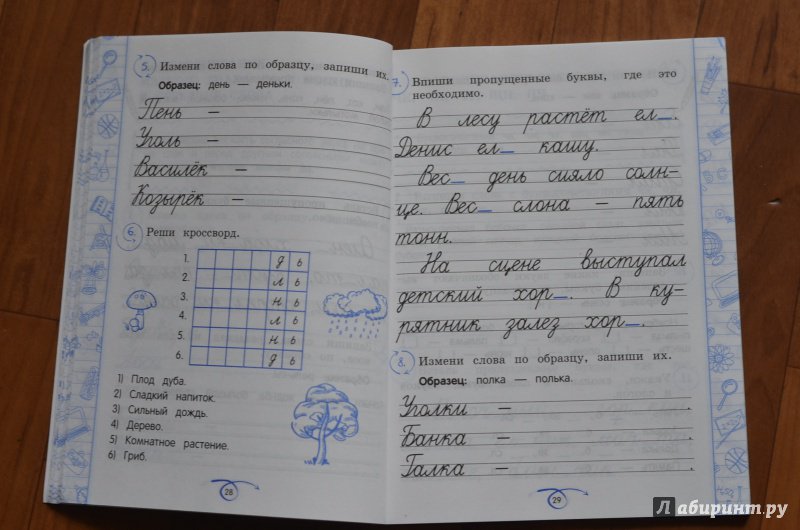 5. Измени слова по образцу, запиши их.
Образец: день — деньки.
Пень —
Уголь —
Василёк —
Козырёк —
6. Реши кроссворд.
1. д ь
2. л ь
3. н ь
4. л ь
5. н ь
6. д ь
1) Плод дуба.
2) Сладкий напиток.
3) Сильный дождь.
4) Дерево.
5) Комнатное растение.
6) Гриб.
28
7. Впиши пропущенные буквы, где это
необходимо.
В лесу растёт ел_.
Денис ел_ кашу.
Вес_ день сияло солн-
це. Вес_ слона — пять
тонн.
На сцене выступал
детский хор_. В ку-
рятник залез хор_.
8. Измени слова по образцу, запиши их.
Образец: полка — полька.
Уголки — .
Банка — .
Галка — .
29
Лабиринт.ру